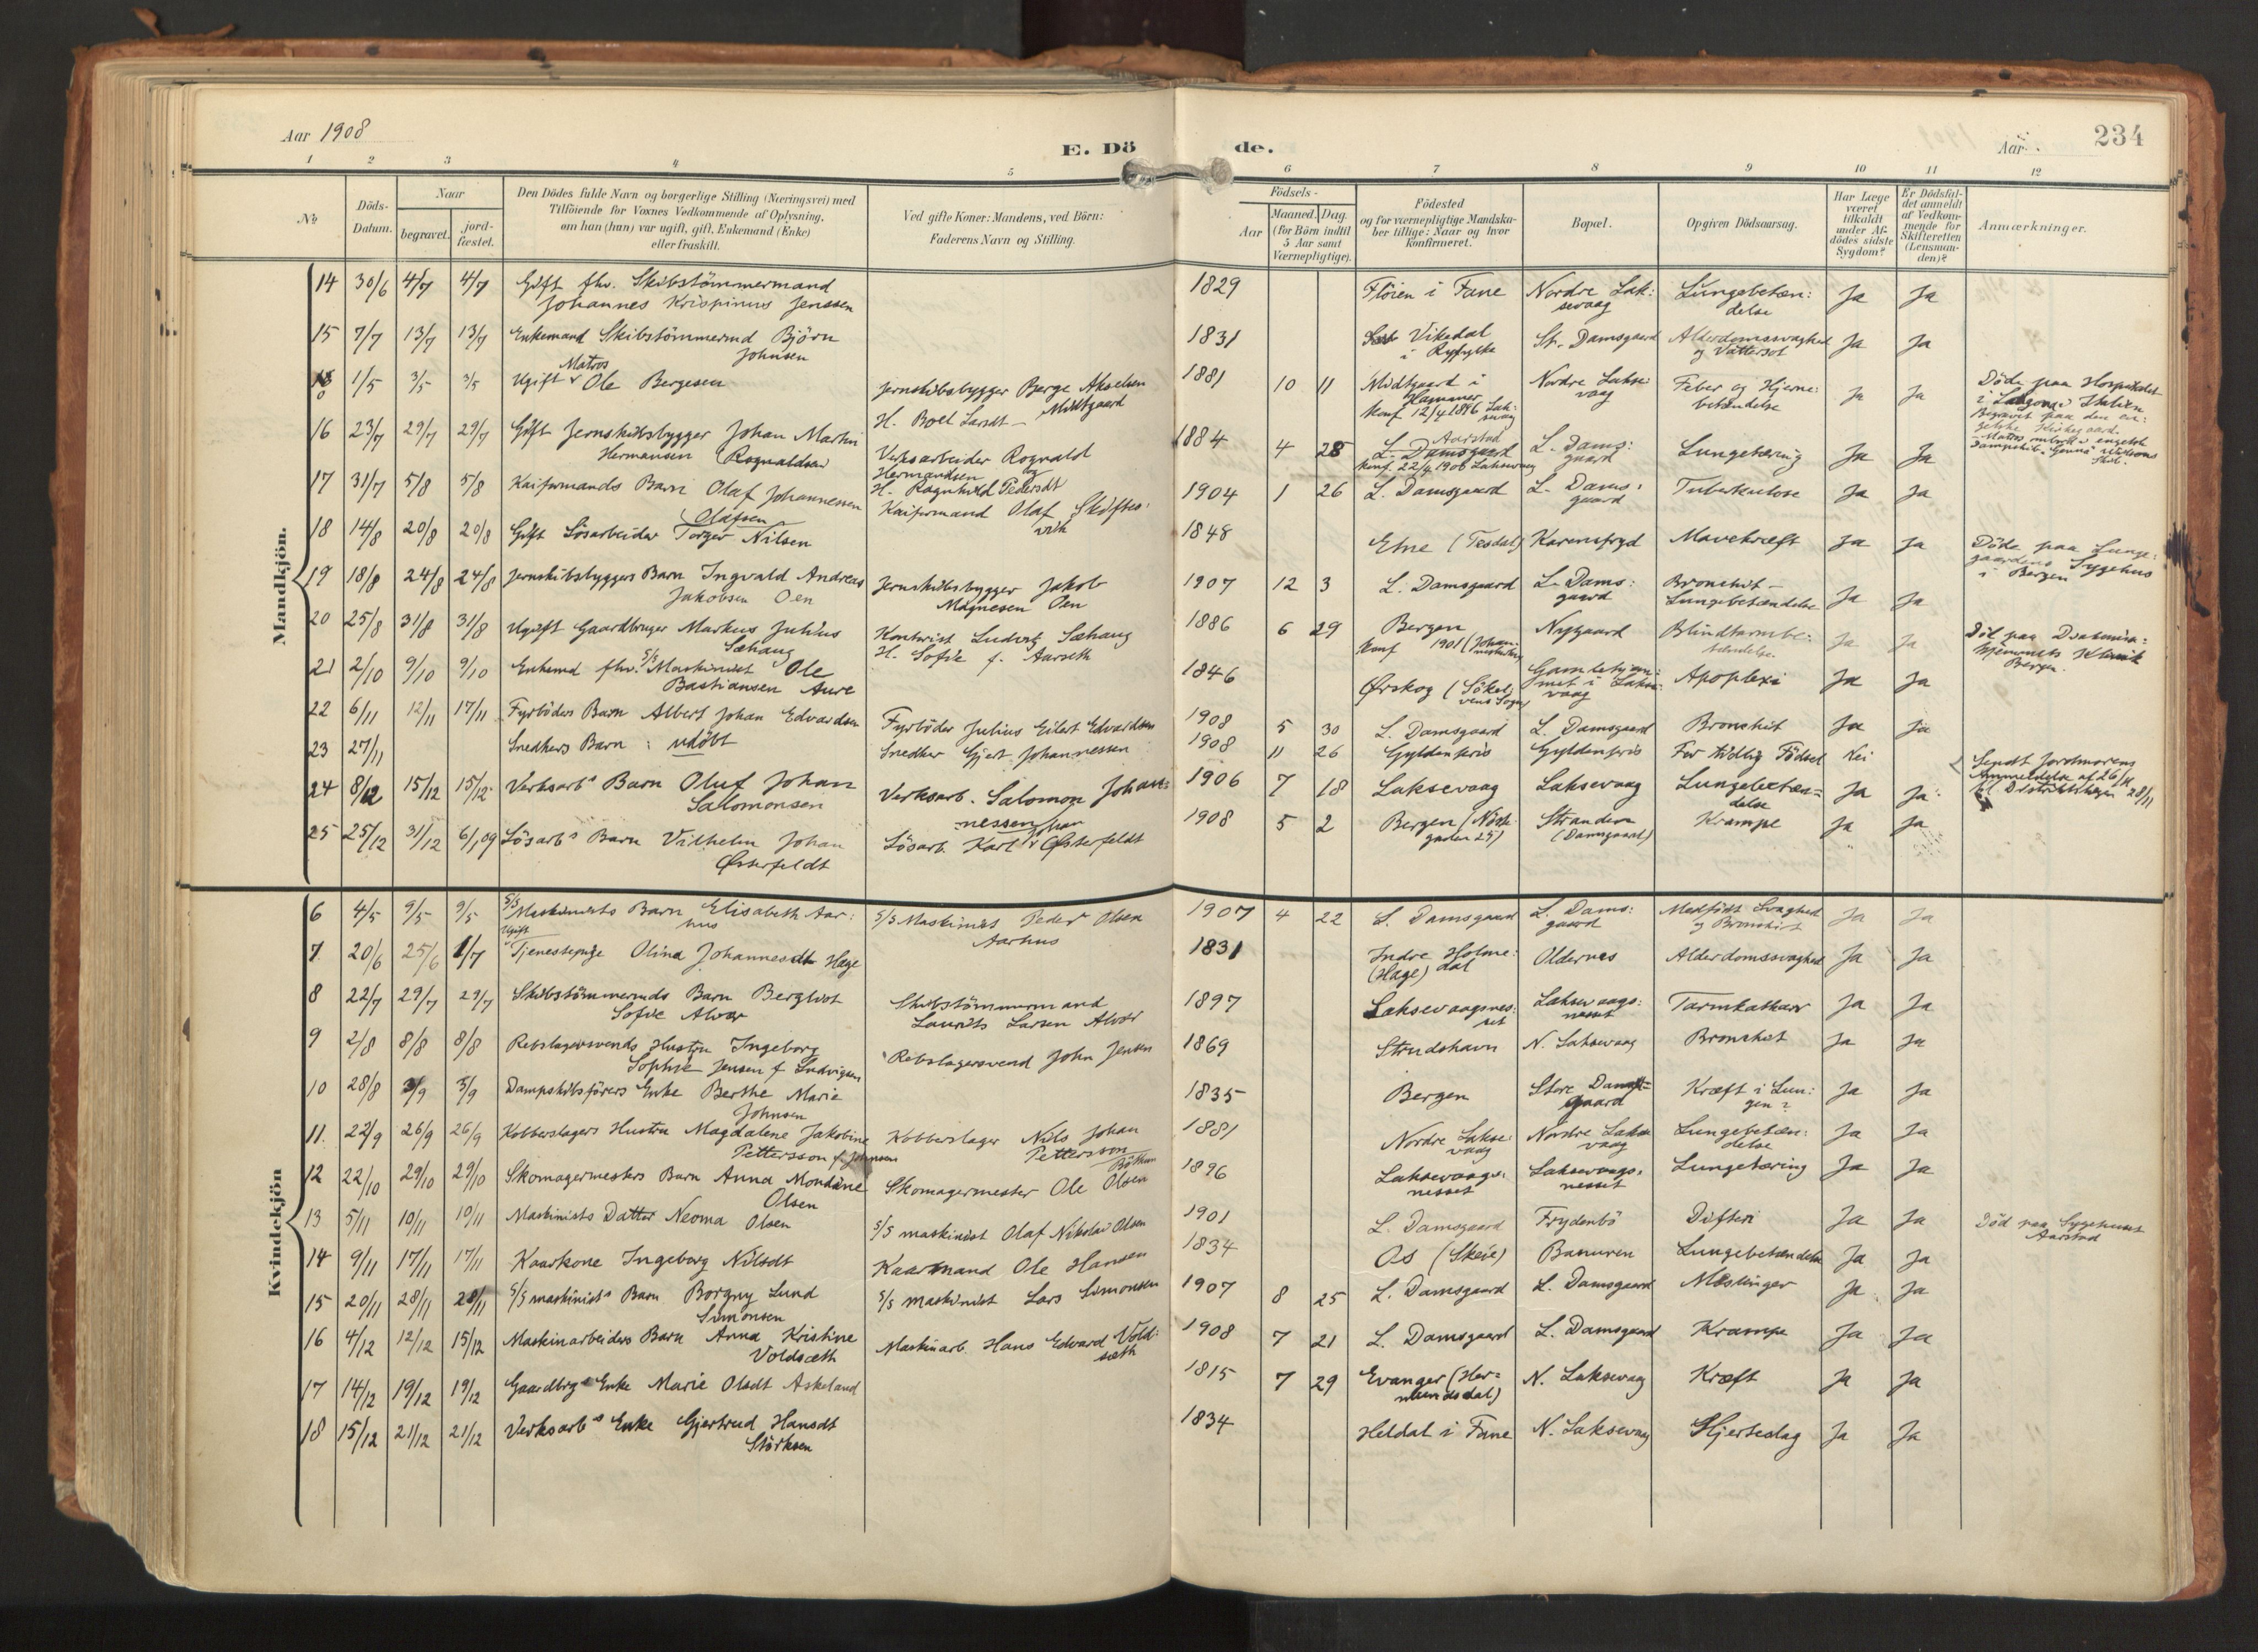 Aar 1908
E. Dö de.
Aar
234
1 2 3 4 5 6 7 8 9 10 11 12
No
Döds-Datum.
Naar
begravet.
jord-fæstet.
Den Dödes fulde Navn og borgerlige Stilling (Næringsvei) med
Tilföiende for Voxnes Vedkommende af Oplysning,
om han (hun) var ugift, gift, Enkemand (Enke)
eller fraskilt.
Ved gifte Koner: Mandens, ved Börn:
Faderens Navn og Stilling.
Födsels-
Aar
Maaned. Dag.
(for Börn indtil
5 Aar samt
Værnepligtige).
Födested
og for værnepligtige Mandska-
ber tillige: Naar og hvor
Konfirmeret.
Bopæl.
Opgiven Dödsaarsag.
Har Læge
været
tilkaldt
under Af-
dödes sidste
Sygdom?
Er Dödsfal-
det anmeldt
af Vedkom-
mende for
Skifteretten
(Lensman-
den)?
Anmærkninger.
Mandkjön.
14 30/6 4/7 4/7 Gift fhv. Skibstömmermand
Johannes Krispinus Jenssen
1829 Flöien i Fane Nordre Lak:
sevaag
Lungebetæn:
delse
Ja Ja
15 7/7 13/7 13/7 Enkemand Skibstömmermd Björn
Johnsen
1831 Vikedal
i Ryfylke
St. Damsgaard Alderdomssvaghed
og Vattersot
Ja Ja
1/5 3/5 3/5 Ugift Matros Ole Bergesen
Jernskibsbygger Berge Akselsen
Midtgaard
1881 10 11 Midtgaard i
Hammer
Konf. 12/4 1896 Lak:
sevaag
Nordre Lakse:
vaag
Feber og Hjerne:
betændelse
Ja Ja
Döde paa Hospitalet
i Italien
Begravet paa den en:
gelske Kirkegaard.
16 23/7 29/7 29/7 Gift Jernskibsbygger Johan Martin
Hermansen (Rognaldsen)
H. Boel Larsdt
Verksarbeider Rognald
Hermandsen og
H. Ragnhild Pedersdt
1884 4 28 Aarstad
L. Damsgaard
Konf. 22/4 1900 Laksevaag
L. Dams:
gaard
Lungetæring Ja Ja
17 31/7 5/8 5/8 Kaiformands Barn Olaf Johannessen
Kaiformand Olaf Skiftes:
vik
1904 1 26 L. Damsgaard L. Dams:
gaard
Tuberkulose Ja Ja
18 14/8 20/8 20/8 Gift Lösarbeider Torger Olafsen Nilsen
1848 Etne (Tesdal) Karensfryd Mavekræft Ja Ja
Döde paa Lunge:
gaardens Sygehus
i Bergen
19 18/8 24/8 24/8 Jernskibsbyggers Barn Ingvald Andreas
Jakobsen Oen
Jernskibsbygger Jakob
Magnesen Oen
1907 12 3 L. Damsgaard L. Dams:
gaard
Bronchit-
Lungebetændelse
Ja Ja
20 25/8 31/8 31/8 Ugift Gaardbruger Markus Julius
Sæhaug
Kontorist Ludvig Sæhaug
H. Sofie f. Aarseth
1886 6 29 Bergen
Konf 1901 (Johan:
neskirken)
Nygaard Blindtarmbe:
tændelse
Ja Ja
Död paa Diakonisse:
hjemmets Klinik
Bergen.
21 2/10 9/10 9/10 Enkemd fhv. S/S Maskinist Ole
Bastiansen Aure
1846 Ørskog (Sökel:
vens Sogn)
Gamlehjem:
met i Lakse:
vaag
Apoplexi Ja Ja
22 6/11 12/11 17/11 Fyrböders Barn Albert Johan Edvardsen
Fyrböder Julius Eilert Edvardsen
1908 5 30 L. Damsgaard L. Damsgaard Bronchit Ja Ja
23 27/11 Snedkers Barn: udöbt
Snedker Gjert Johannessen
1908 11 26 Gyldenpris Gyldenpris For tidlig Födsel Nei
Sendt Jordmorens
Anmeldelse af 26/11
til Distriktslægen 28/11
24 8/12 15/12 15/12 Verksarbs Barn Oluf Johan
Salomonsen
Verksarb. Salomon Johan:
nessen
1906 7 18 Laksevaag Laksevaag Lungebetæn=
delse
Ja Ja
25 25/12 31/12 6/1 09 Lösarbs Barn Vilhelm Johan
Østerfeldt
Lösarb. Karl Johan Østerfeldt
1908 5 2 Bergen (Nöste:
gaden 25)
Stranden
(Damsgaard)
Krampe Ja Ja
Kvindekjön
6 4/5 9/5 9/5 S/S Maskinists Barn Elisabeth Aar:
hus
S/S Maskinist Peder Olsen
Aarhus
1907 4 22 L. Damsgaard L. Dams:
gaard
Medfödt Svaghed
og Bronchit
Ja Ja
7 20/6 25/6 1/7 Ugift Tjenestepige Olina Johannesdt Hage
1831 Indre Holme:
(Hage) dal
Oldernes Alderdomssvaghed Ja Ja
8 22/7 29/7 29/7 Skibstömmermds Barn Bergliot
Sofie Alver
Skibstömmermand
Laurits Larsen Alver
1897 Laksevaagnes:
set
Laksevaags:
nesset
Tarmkatharr Ja Ja
9 2/8 8/8 8/8 Rebslagersvends Hustru Ingeborg
Sophie Jensen f Ludvigsen
Rebslagersvend John Jensen
1869 Strudshavn N. Laksevaag Bronchit Ja Ja
10 28/8 3/9 3/9 Dampskibsförers Enke Berthe Marie
Johnsen
1835 Bergen Store Dams=
gaard
Kræft i Lun:
gen?
Ja Ja
11. 22/9 26/9 26/9 Kobberslagers Hustru Magdalene Jakobine
Pettersson f. Johnsen
Kobberslager Nils Johan
Pettersson
1881 Nordre Lakse:
vaag
Nordre Lakse
vaag
Lungebetæn:
delse
Ja Ja
12 22/10 29/10 29/10 Skomagermesters Barn Anna Mondine
Olsen
Skomagermester Ole Olsen
1896 Laksevaags:
nesset
Laksevaags:
nesset
Lungetæring Ja Ja
13 5/11 10/11 10/11 Maskinists Datter Neoma Olsen
S/S maskinist Olaf Nikolai Olsen
1901 L. Damsgaard Frydenbö Difteri Ja Ja
Död paa Sygehuset
Aarstad
14 9/11 17/11 17/11 Kaarkone Ingeborg Nilsdt
Kaarmand Ole Hansen
1834 Os (Skeie) Banuren Lungebetændelse Ja Ja
15 20/11 28/11 28/11 S/S maskinists Barn Borgny Lund
Simonsen
S/S maskinist Lars Simonsen
1907 8 25 L. Damsgaard L. Damsgaard Meslinger Ja Ja
16 4/12 12/12 15/12 Maskinarbeiders Barn Anna Kristine
Voldsæth
Maskinarb. Hans Edvard Vold:
sæth
1908 7 21 L. Damsgaard L. Damsgaard Krampe Ja Ja
17 14/12 19/12 19/12 Gaardbrgs Enke Marie Olsdt Askeland
1815 7 29 Evanger (Her=
mundsdal)
N. Laksevaag Kræft Ja Ja
18 15/12 21/12 21/12 Verksarbs Enke Gjertrud Hansdt
Störksen
1834 Heldal i Fane N. Laksevaag Hjerteslag Ja Ja